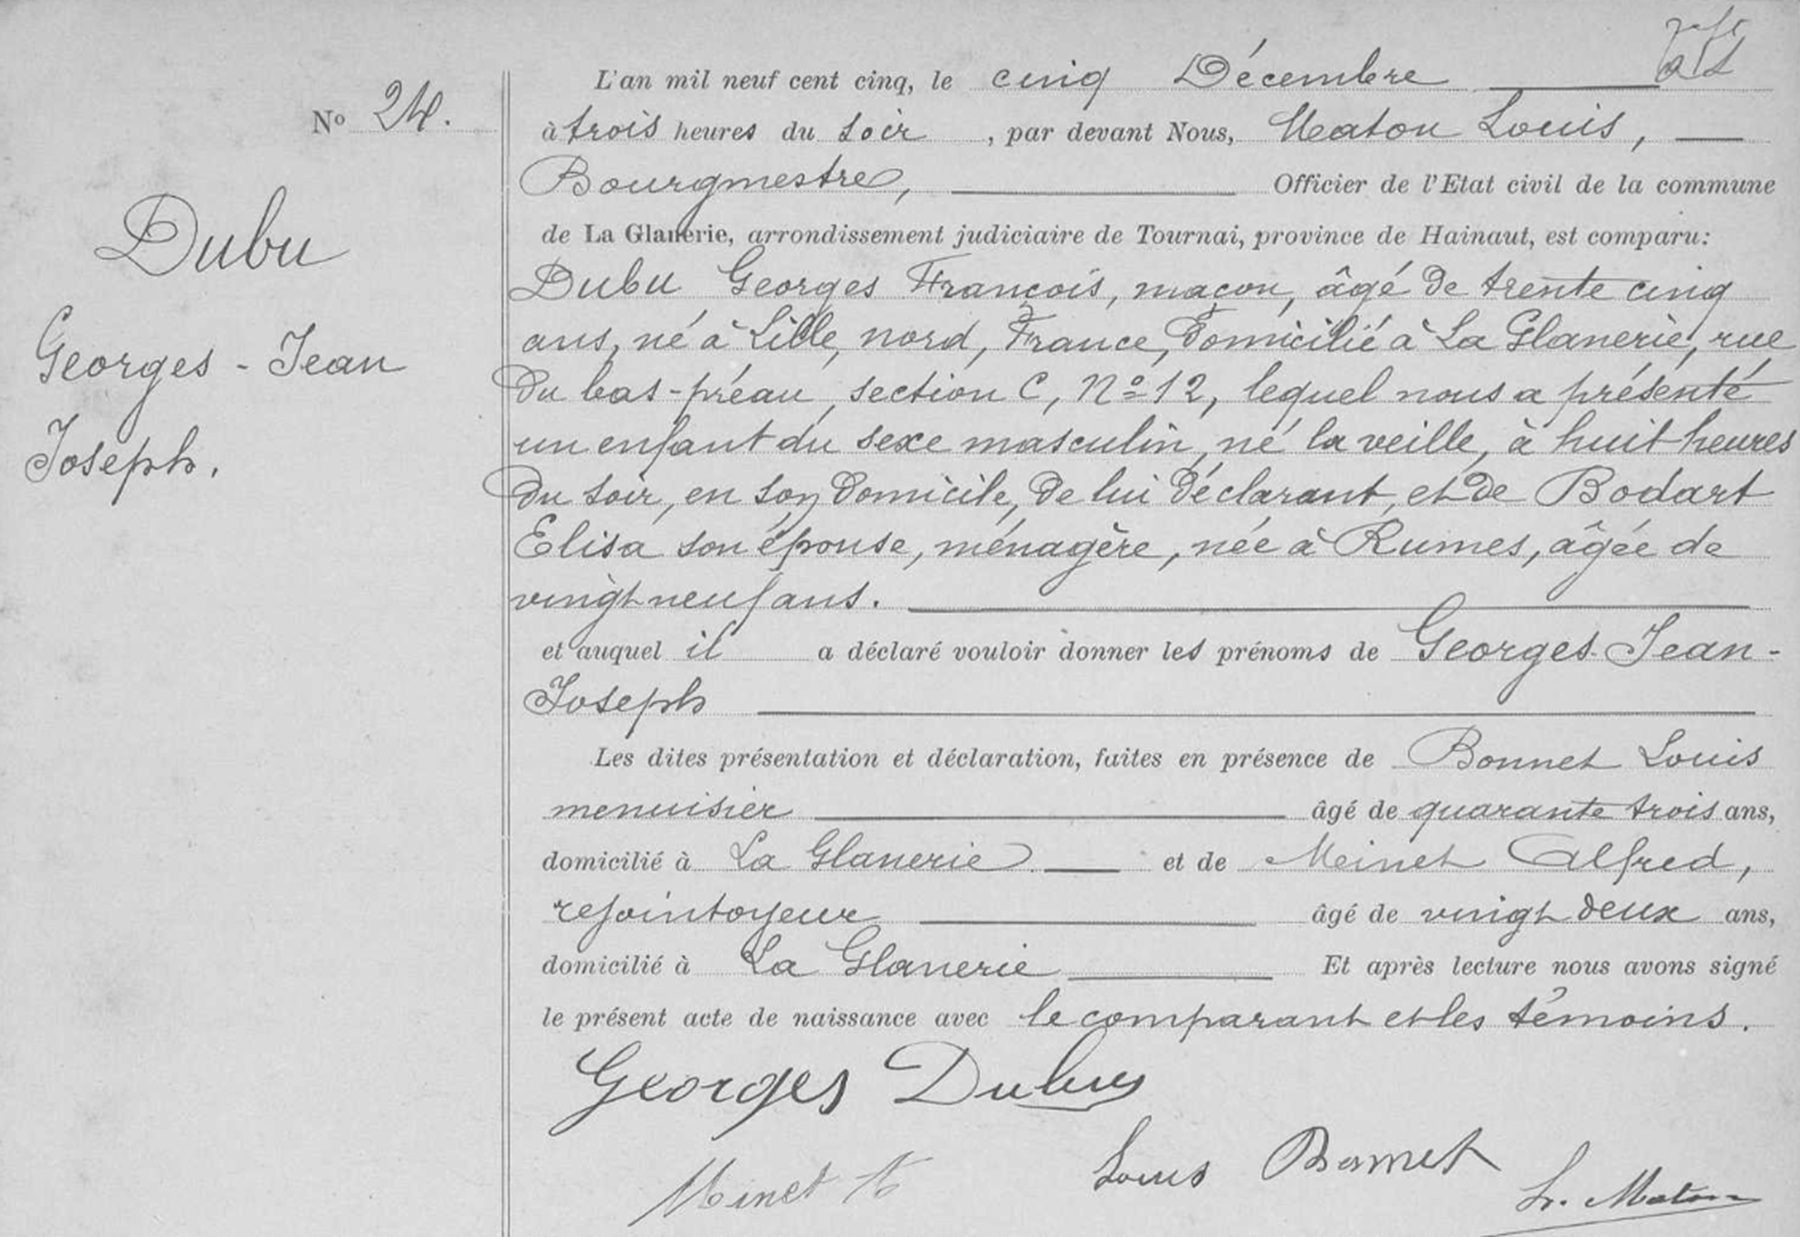 L'an mil neuf cent cinq, le cinq Décembre
No 24. à trois heures du soir, par devant Nous, Maton Louis,
Bourgmestre, Officier de l'Etat civil de la commune
de La Glanerie, arrondissement judiciaire de Tournai, province de Hainaut, est comparu:
Dubu
Georges - Jean
Joseph.
Dubu Georges François, maçon, âgé de trente cinq
ans, né à Lille, nord, France, domicilié à La Glanerie, rue
du bas-préau, section C, No 12, lequel nous a présenté
un enfant du sexe masculin, né la veille, à huit heures
du soir, en son domicile, de lui déclarant, et de Bodart
Elisa son épouse, ménagère, née à Rumes, âgée de
vingt neuf ans.
et auquel il a déclaré vouloir donner les prénoms de Georges-Jean-
Joseph
Les dites présentation et déclaration, faites en présence de Bonnet Louis
menuisier âgé de quarante trois ans,
domicilié à La Glanerie et de Meinet Alfred,
rejointoyeur âgé de vingt deux ans,
domicilié à La Glanerie Et après lecture nous avons signé
le présent acte de naissance avec le comparant et les témoins.
Georges Dubus
Louis Bonnet
Minet A
L. Maton